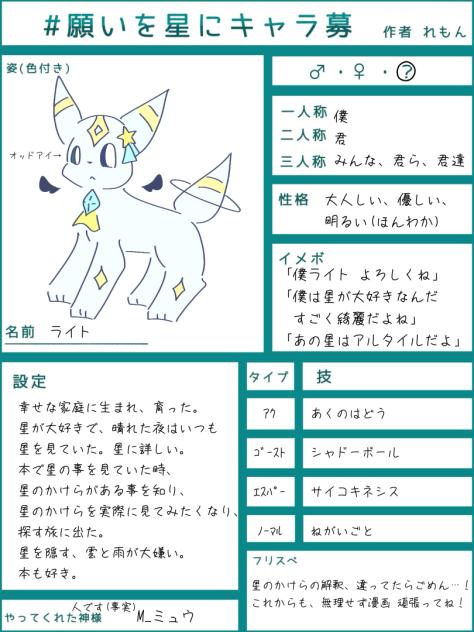 #願いを星にキャラ募
作者 れもん
姿(色付き)
オッドアイ→
名前 ライト
♂・♀・?
一人称 僕
二人称 君
三人称 みんな、君ら、君達
性格 大人しい、優しい、
明るい(ほんわか)
イメボ
「僕ライト よろしくね」
「僕は星が大好きなんだ
すごく綺麗だよね」
「あの星はアルタイルだよ」
設定
幸せな家庭に生まれ、育った。
星が大好きで、晴れた夜はいつも
星を見ていた。星に詳しい。
本で星の事を見ていた時、
星のかけらがある事を知り、
星のかけらを実際に見てみたくなり、
探す旅に出た。
星を隠す、雲と雨が大嫌い。
本も好き。
タイプ 技
アク あくのはどう
ゴースト シャドーボール
エスパー サイコキネシス
ノーマル ねがいごと
フリスペ
星のかけらの解釈、違ってたらごめん…!
これからも、無理せず漫画 頑張ってね!
人です(事実)
やってくれた神様 M_ミュウ